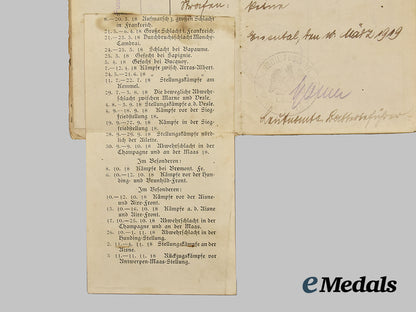 Strafen: Keine
6.—20. 3. 18 Aufmarsch z. großen Schlacht
in Frankreich.
21. 3.—6. 4. 18 Große Schlacht i. Frankreich.
21.—22. 3. 18 Durchbruchschlacht Monchy-
Cambrai.
24.—25. 3. 18 Schlacht bei Bapaume.
25. 3. 18 Gefecht bei Sapignie.
26. 3. 18 Gefecht bei Bucquoy.
7.—12. 4. 18 Kämpfe zwisch. Arras-Albert.
24. 5.—21. 6. 18 " "
2.—22. 7. 18 Stellungskämpfe am
Kemmel.
2. 18 Die bewegliche Abwehr-
schlacht zwischen Marne und Vesle.
4. 8.—3. 9. 18 Stellungskämpfe a. d. Vesle.
4.—18. 9. 18 Kämpfe vor der Sieg-
friedstellung 18.
19. 9.—27. 9. 18 Kämpfe in der Sieg-
friedstellung 18.
28. 9. 18 Stellungskämpfe nörd-
lich der Ailette.
30. 9.—9. 10. 18 Abwehrschlacht in der
Champagne und an der Maas 18.
Im Besonderen:
8. 10. 18 Kämpfe bei Bremont. Fe.
6. 10. 18 Kämpfe vor der Hun-
ding- und Brunhild-Front.
Im Besonderen:
10.—12. 10. 18 Kämpfe vor der Aisne
und Aire-Front.
13. 10.—16. 10. 18 Kämpfe a. d. Aisne
und Aire-Front.
17. 10.—25. 10. 18 Abwehrschlacht in der
Champagne und an der Maas.
26. 10.—1. 11. 18 Abwehrschlacht in der
Hunding-Stellung.
2. 11.—4. 11. 18 Stellungskämpfe an der
Aisne.
5. 11.—11. 11. 18 Rückzugskämpfe vor
Antwerpen-Maas-Stellung.
den 10. März 1919
Leutnant u.
eMedals